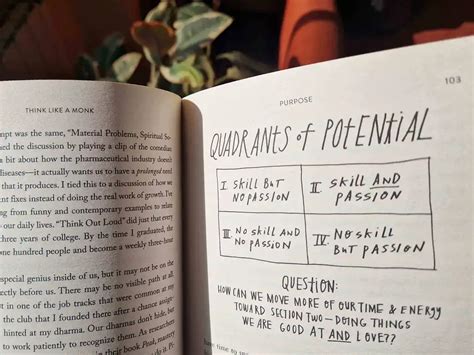 THINK LIKE A MONK
mpt was the same, "Material Problems, Spiritual So-
ued the discussion by playing a clip of the comedian
a bit about how the pharmaceutical industry doesn't
diseases—it actually wants us to have a prolonged need
that it produces. I tied this to a discussion of how we
ent fixes instead of doing the real work of growth. I've
ing from funny and contemporary examples to relate
our daily lives. "Think Out Loud" did just that every
three years of college. By the time I graduated, the
one hundred people and become a weekly three-hour
special genius inside of us, but it may not be on the
ectly before us. There may be no visible path at all.
ut in one of the job tracks that were common at my
the club that I founded there after a chance assign-
hinted at my dharma. Our dharmas don't hide, but
to work patiently to recognize them. As researchers
in their book Peak, mastery
PURPOSE
103
QUADRANTS of POTENTIAL
I. SKILL BUT
NO PASSION
II. SKILL AND
PASSION
III. NO SKILL AND
NO PASSION
IV. NO SKILL
BUT PASSION
QUESTION:
HOW CAN WE MOVE MORE OF OUR TIME & ENERGY
TOWARD SECTION TWO—DOING THINGS
WE ARE GOOD AT AND LOVE??